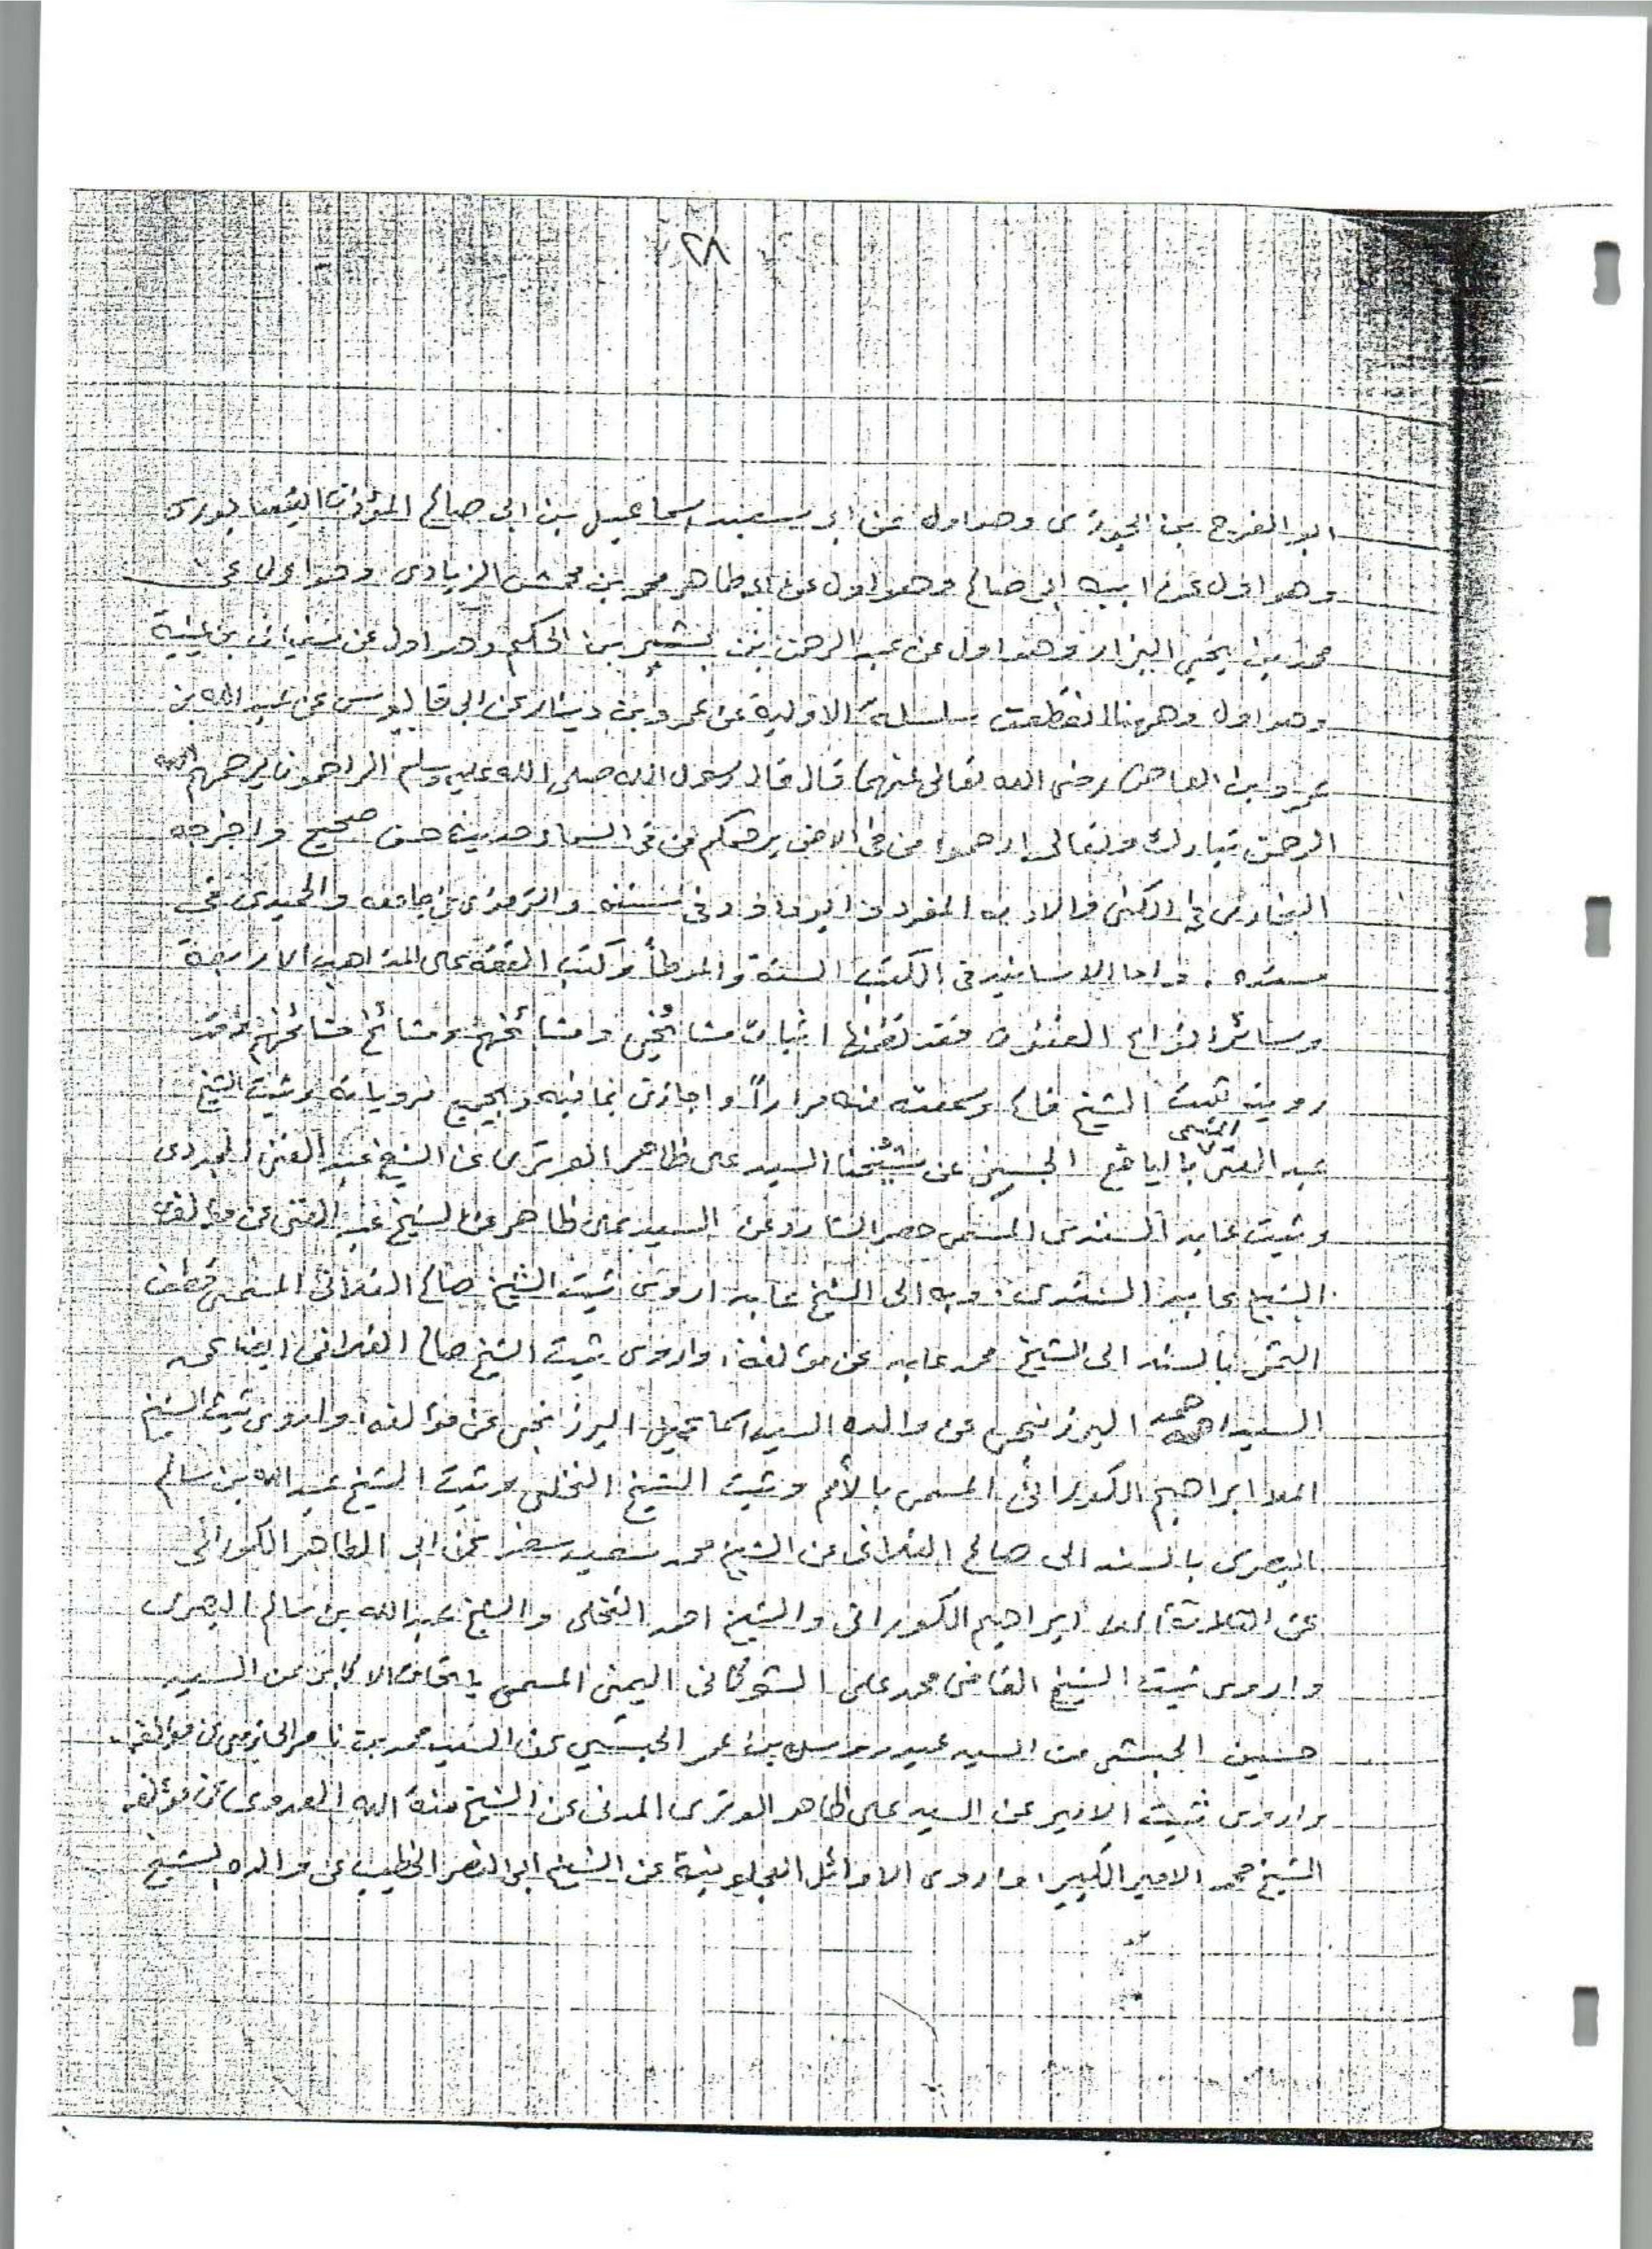 ٢٨
ابو الفرج بن الجوزى وهو اول عن ابى سعيد اسماعيل بن ابى صالح المؤذن النيسابورى
وهو اول عن ابيه ابى صالح وهو اول عن ابى طاهر محمد بن محمش الزيادى وهو اول عن
محمد بن يحيى البزار وهو اول عن عبد الرحمن بن بشير بن الحكم وهو اول عن سفيان بن عيينة
وهو اول وههنا انقطعت سلسلة الاولية عن عمرو ابن دينار عن ابى قابوس عن عبد الله بن
عمرو ابن العاص رضى الله تعالى عنهما قال قال رسول الله صلى الله عليه وسلم الراحمون يرحمهم الله
الرحمن تبارك وتعالى ارحموا من فى الارض يرحمكم من فى السماء حديث حسن صحيح واخرجه
البخارى فى الكنى والادب المفرد وابو داؤد فى سننه والترمذى فى جامعه والحميدى فى
مسنده . واما الاسانيد فى الكتب الستة والموطأ وكتب الفقه على المذاهب الاربعة
وسائر انواع الفنون فقد اثبات مشائخى ومشائخهم ومشائخ مشائخهم وقد
رويت ثبت الشيخ فالح وسمعته منه مرارًا واجازنى بما فيه وبجميع مروياته وثبت الشيخ
عبد الغنى المسمى باليانع الجنى عن شيخنا السيد على ظاهر الوترى عن الشيخ عبد الغنى المجددى
وثبت عابد السندى المسمى حصر الشارد عن السيد على ظاهر عن الشيخ عبد الغنى عن مؤلفه
الشيخ عابد السندى . وبه الى الشيخ عابد اروى ثبت الشيخ صالح الفلانى المسمى قطف
الثمر بالسند الى الشيخ محمد عابد عن مؤلفه ، واروى ثبت الشيخ صالح الفلانى ايضا عن
السيد احمد البرزنجى عن والده السيد اسماعيل البرزنجى عن مؤلفه ، واروى ثبت الشيخ
الملا ابراهيم الكورانى المسمى بالأمم وثبت الشيخ النخلى وثبت الشيخ عبد الله بن سالم
البصرى بالسند الى صالح الفلانى عن الشيخ محمد سعيد سفر عن ابى الطاهر الكورانى
عن الثلاثة الملا ابراهيم الكورانى والشيخ احمد النخلى والشيخ عبد الله بن سالم البصرى
واروى ثبت الشيخ القاضى محمد على الشوكانى اليمنى المسمى باتحاف الاكابر عن السيد
حسين الحبشى عن السيد عيدروس بن عمر الحبشي عن السيد محمد بن ناصر الحازمى عن مؤلفه
واروى ثبت الامير عن السيد على ظاهر الوترى المدنى عن الشيخ منة الله العدوى عن مؤلفه
الشيخ محمد الامير الكبير ، واروى الاوائل العجلونية عن الشيخ ابى النصر الخطيب عن والده الشيخ